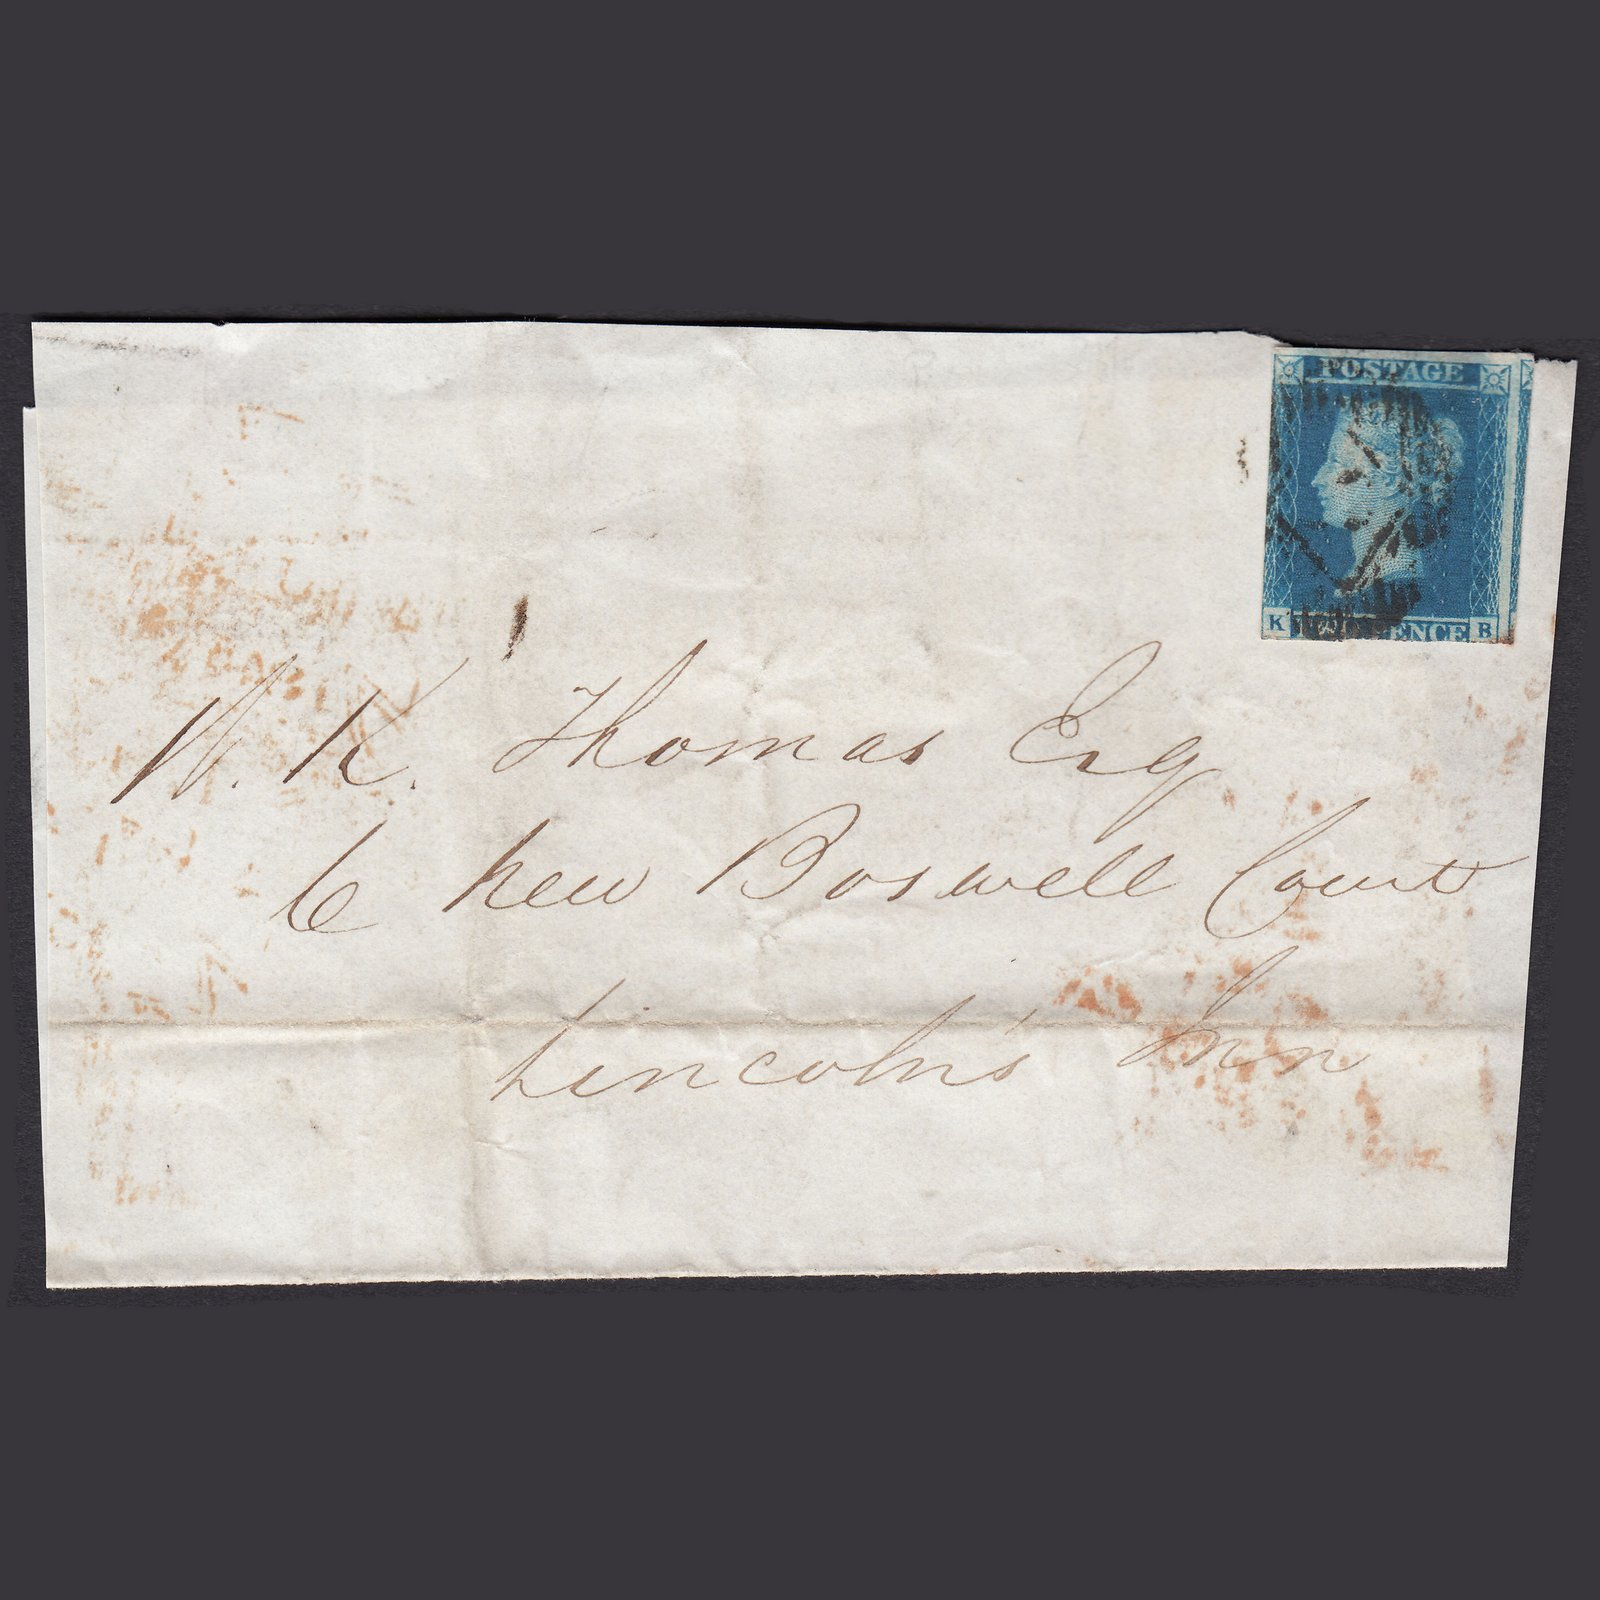 POSTAGE
K TWO PENCE B
W. K. Thomas Esq
6 New Boswell Court
Lincoln's Inn